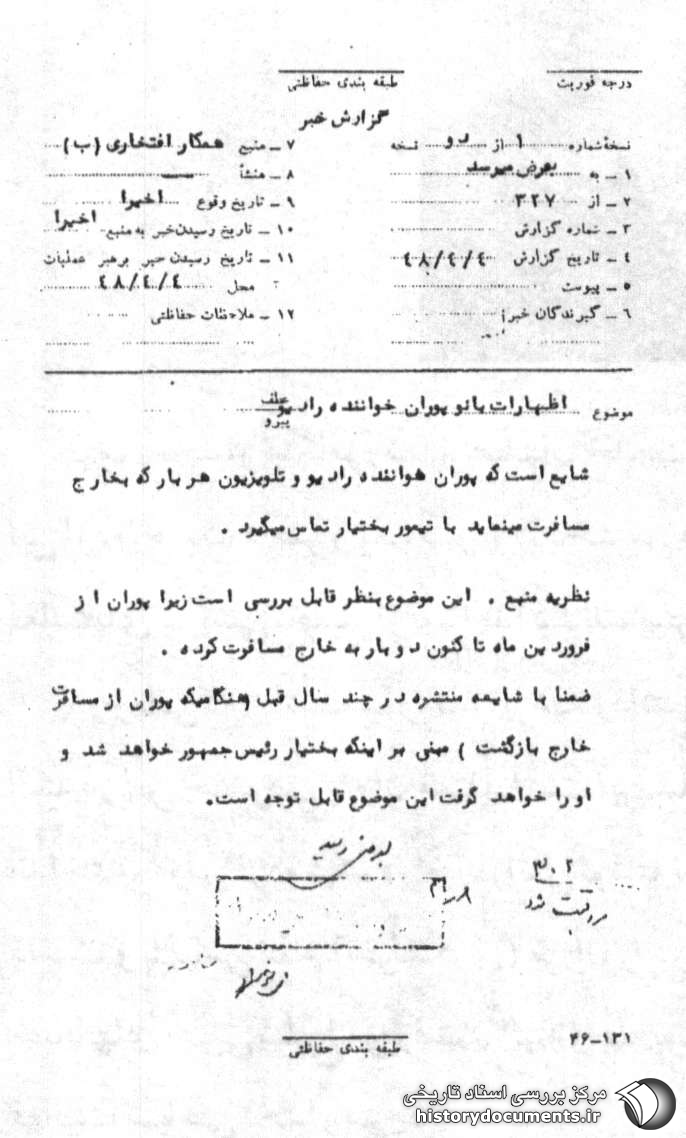 درجه فوریت
طبقه بندی حفاظتی
گزارش خبر
نسخهٔ شماره ۱ از دو نسخه
۱ – به بعرض میرسد
۲ – از ۳۲۷
۳ – شماره گزارش
۴ – تاریخ گزارش ۴۸/۴/۴
۵ – پیوست
۶ – گیرندگان خبر:
۷ – منبع همکار افتخاری (ب)
۸ – منشأ
۹ – تاریخ وقوع اخیرا
۱۰ – تاریخ رسیدن خبر به منبع اخیرا
۱۱ – تاریخ رسیدن خبر برهبر عملیات
محل ۴۸/۴/۴
۱۲ – ملاحظات حفاظتی
موضوع اظهارات بانو پوران خواننده رادیو
عطف
پیرو
شایع است که پوران هواننده رادیو و تلویزیون هر بار که بخارج
مسافرت مینماید با تیمور بختیار تماس میگیرد .
نظریه منبع . این موضوع بنظر قابل بررسی است زیرا پوران از
فروردین ماه تا کنون دو بار به خارج مسافرت کرده .
ضمنا با شایعه منتشره در چند سال قبل (هنگامیکه پوران از مسافرت
خارج بازگشت ) مبنی بر اینکه بختیار رئیس جمهور خواهد شد و
او را خواهد گرفت این موضوع قابل توجه است.
بعرض رسید
۳۰۲
ثبت شد
۴۶–۱۳۱
طبقه بندی حفاظتی
مرکز بررسی اسناد تاریخی
historydocuments.ir